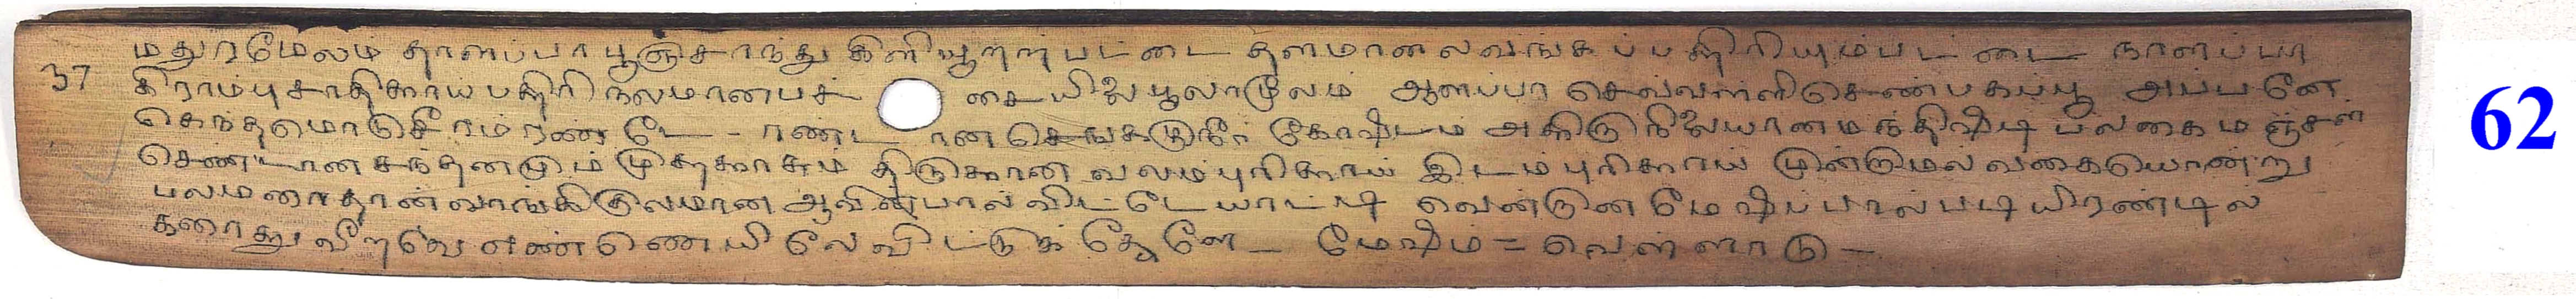 மதுரமேலம் தாளப்பா பூஞ்சாந்து கிளியூற்றற்பட்டை தளமானலவங்கப்பத்திரியும்பட்டை நாளப்பா
37 கிராம்புசாதிகாய்பத்திரி நலமானபச் சையிலைபூலாமூலம் ஆளப்பா செவ்வள்ளிசெண்பகப்பூ அப்பனே
கெந்தமொடுசீரம் ரண்டே - ரண்டான செங்கழுநீர் கோஷ்டம் அகிரு நிலையானமந்திஷ்டி பலகைமஞ்சள்
செண்டானசந்தனமும் முத்தகாசும் திருகான் வலம்புரிகாய் இடம்புரிகாய் முன்னுமல வகையொன்று
பலமரைதான்வாங்கிமூலமான ஆவின்பால்விட்டேயாட்டி வென்றுன மேஷிப்பால்படியிரண்டில்
கரைத்து வீறவே எண்ணெயிலேவிட்டுக் தேனே - மேஷம் = வெள்ளாடு -
62